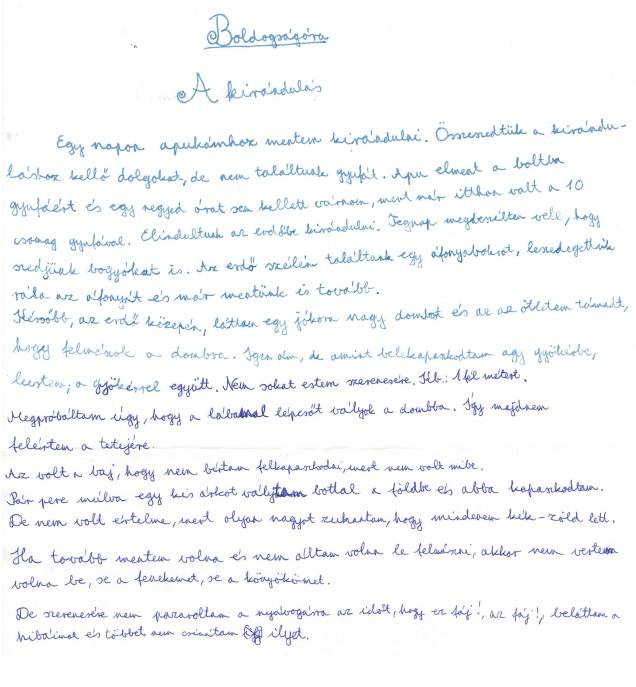 Boldogságóra
A kirándulás
Egy napon apukámhoz mentem kirándulni. Összeszedtük a kirándu-
láshoz kellő dolgokat, de nem találtunk gyufát. Apu elment a boltba
gyufáért és egy negyed órát sem kellett várnom, mert már itthon volt a 10
csomag gyufával. Elindultunk az erdőbe kirándulni. Tegnap megbeszéltem vele, hogy
szedjünk bogyókat is. Az erdő szélén találtunk egy áfonyabokrot, leszedegettük
róla az áfonyát és már mentünk is tovább.
Később, az erdő közepén, láttam egy jókora nagy dombot és az az ötletem támadt,
hogy felmászok a dombra. Igen ám, de amint belekapaszkodtam egy gyökérbe,
leestem; a gyökérrel együtt. Nem sokat estem szerencsére. Kb.: 1 fél métert.
Megpróbáltam úgy, hogy a lábammal lépcsőt vályok a dombba. Így majdnem
felértem a tetejére.
Az volt a baj, hogy nem bírtam felkapaszkodni, mert nem volt mibe.
Pár perc múlva egy kis árkot válytam bottal a földbe és abba kapaszkodtam.
De nem volt értelme, mert olyan nagyot zuhantam, hogy mindenem kék-zöld lett.
Ha tovább mentem volna és nem álltam volna le felmászni, akkor nem vertem
volna be, se a fenekemet, se a könyökömet.
De szerencsére nem pazaroltam a nyávogásra az időt, hogy ez fáj!, az fáj!, beláttam a
hibáimat és többet nem csináltam ilyet.